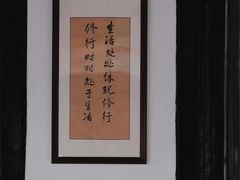 生活处处体现修行
修行时时处于生活